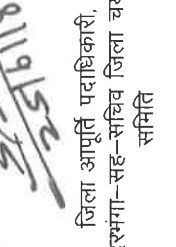 जिला आपूर्ति पदाधिकारी,
रभंगा-सह-सचिव जिला चय
समिति